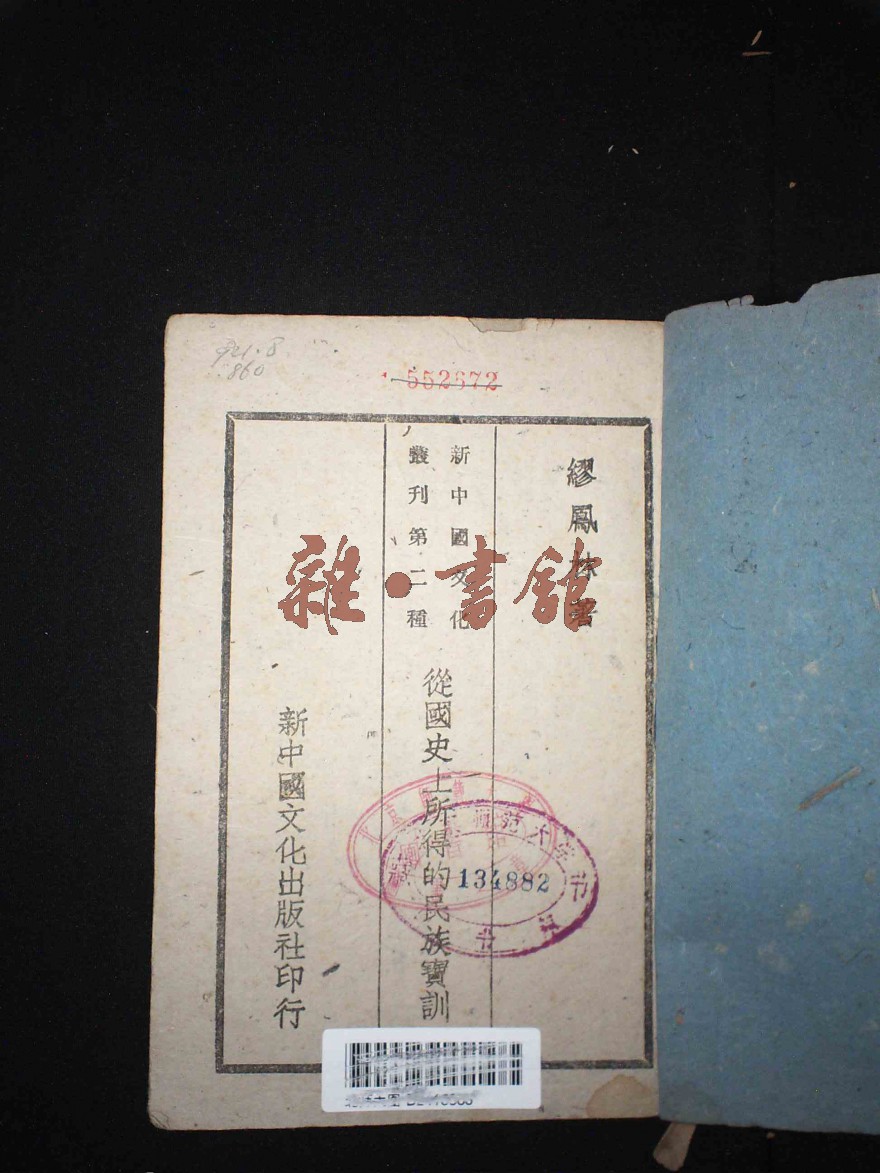 921.8
860
552672
繆鳳林著
新中國文化
叢刊第二種
從國史上所得的民族寶訓
新中國文化出版社印行
雜·書館
134882